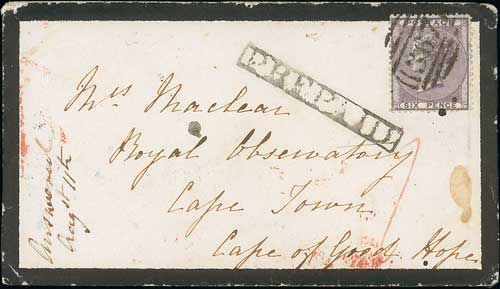 POSTAGE
SIX PENCE
PREPAID
Mrs Maclear
Royal Observatory
Cape Town
Cape of Good Hope
Answered
Aug 11th